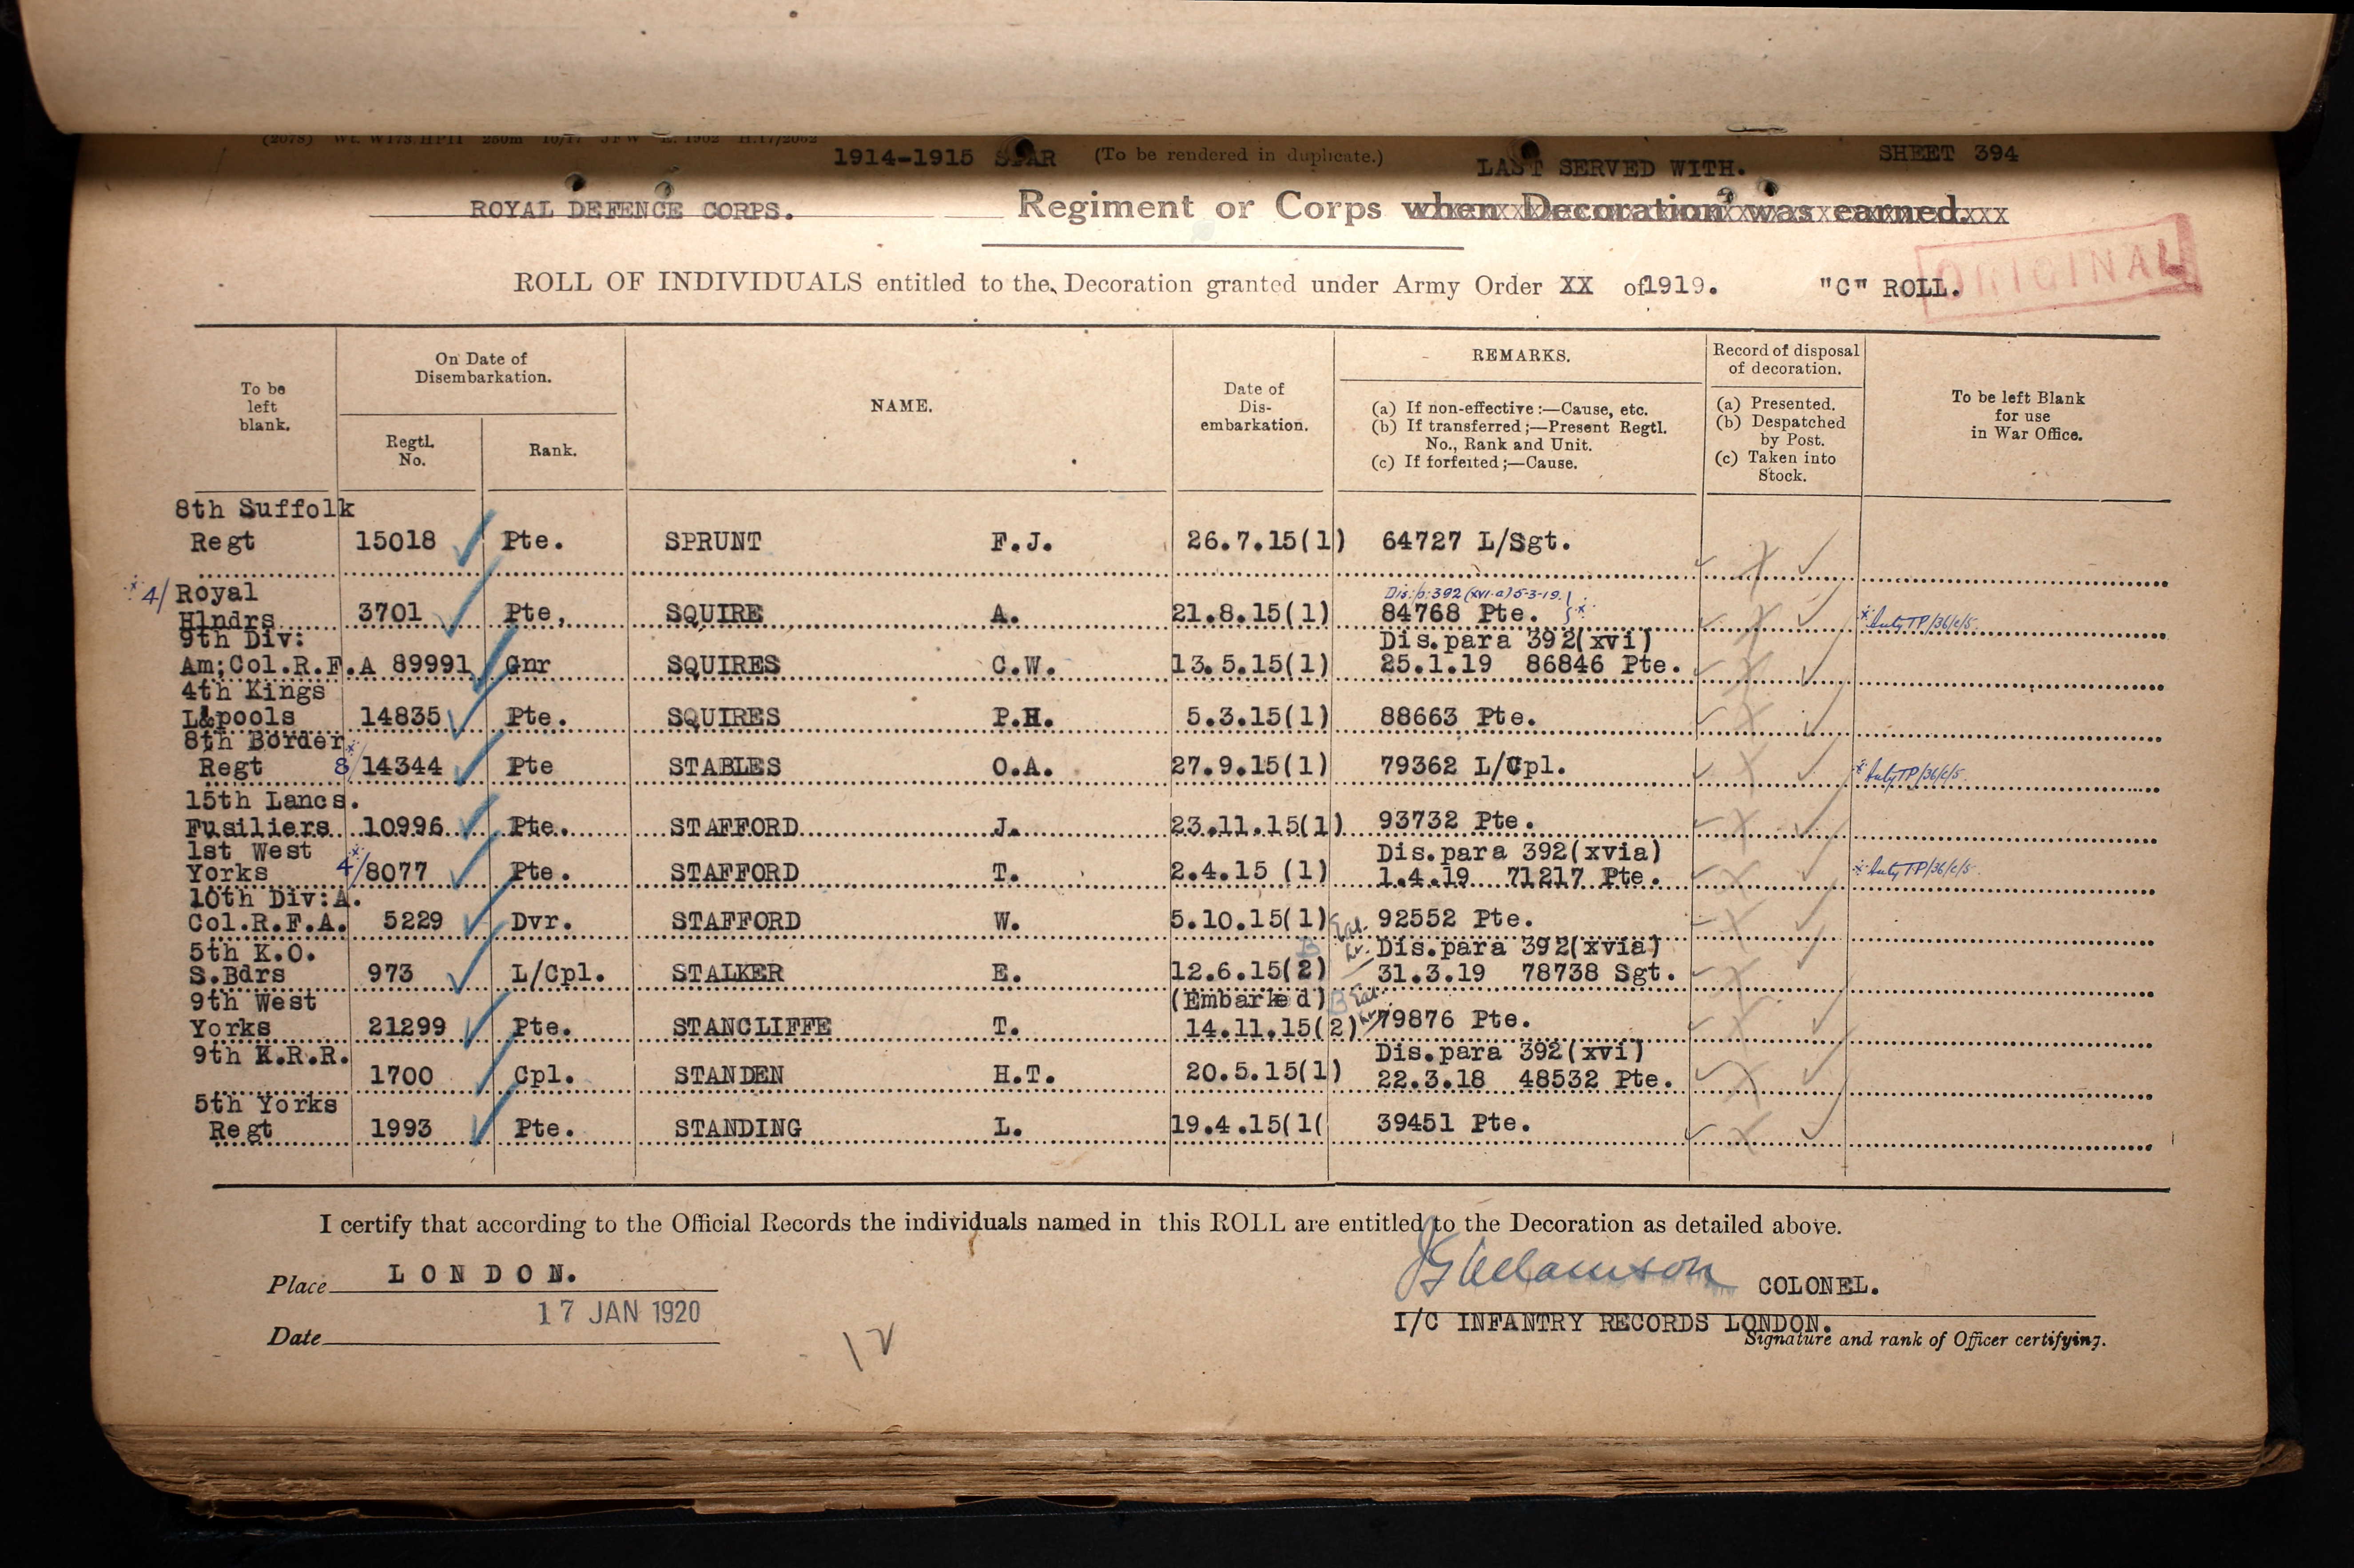 1914-1915 STAR (To be rendered in duplicate.) LAST SERVED WITH. SHEET 394
ROYAL DEFENCE CORPS. Regiment or Corps when Decoration was earned.
ORIGINAL
ROLL OF INDIVIDUALS entitled to the Decoration granted under Army Order XX of 1919. "C" ROLL.
To be left blank.
On Date of Disembarkation.
Regtl. No.
Rank.
NAME.
Date of Disembarkation.
REMARKS.
(a) If non-effective:—Cause, etc.
(b) If transferred;—Present Regtl. No., Rank and Unit.
(c) If forfeited;—Cause.
Record of disposal of decoration.
(a) Presented.
(b) Despatched by Post.
(c) Taken into Stock.
To be left Blank for use in War Office.
8th Suffolk
Regt 15018 Pte. SPRUNT F.J. 26.7.15(1) 64727 L/Sgt.
4/ Royal Dis: p: 392 (xvi-a) 5-3-19.
Hlndrs 3701 Pte, SQUIRE A. 21.8.15(1) 84768 Pte. TP/36/c/5.
9th Div: Dis.para 392(xvi)
Am;Col.R.F.A 89991 Gnr SQUIRES C.W. 13.5.15(1) 25.1.19 86846 Pte.
4th Kings
L&pools 14835 Pte. SQUIRES P.H. 5.3.15(1) 88663 Pte.
8th Border
Regt 8/14344 Pte STABLES O.A. 27.9.15(1) 79362 L/Cpl. TP/36/c/5.
15th Lancs.
Fusiliers 10996 Pte. STAFFORD J. 23.11.15(1) 93732 Pte.
1st West Dis.para 392(xvia)
Yorks 4/8077 Pte. STAFFORD T. 2.4.15 (1) 1.4.19 71217 Pte. TP/36/c/5.
10th Div:A.
Col.R.F.A. 5229 Dvr. STAFFORD W. 5.10.15(1) 92552 Pte.
5th K.O. B Dis.para 392(xvia)
S.Bdrs 973 L/Cpl. STALKER E. 12.6.15(2) 31.3.19 78738 Sgt.
9th West (Embarked) B
Yorks 21299 Pte. STANCLIFFE T. 14.11.15(2) 79876 Pte.
9th K.R.R. Dis.para 392(xvi)
1700 Cpl. STANDEN H.T. 20.5.15(1) 22.3.18 48532 Pte.
5th Yorks
Regt 1993 Pte. STANDING L. 19.4.15(1( 39451 Pte.
I certify that according to the Official Records the individuals named in this ROLL are entitled to the Decoration as detailed above.
Place LONDON.
COLONEL.
Date 17 JAN 1920
I/C INFANTRY RECORDS LONDON.
Signature and rank of Officer certifying.
12